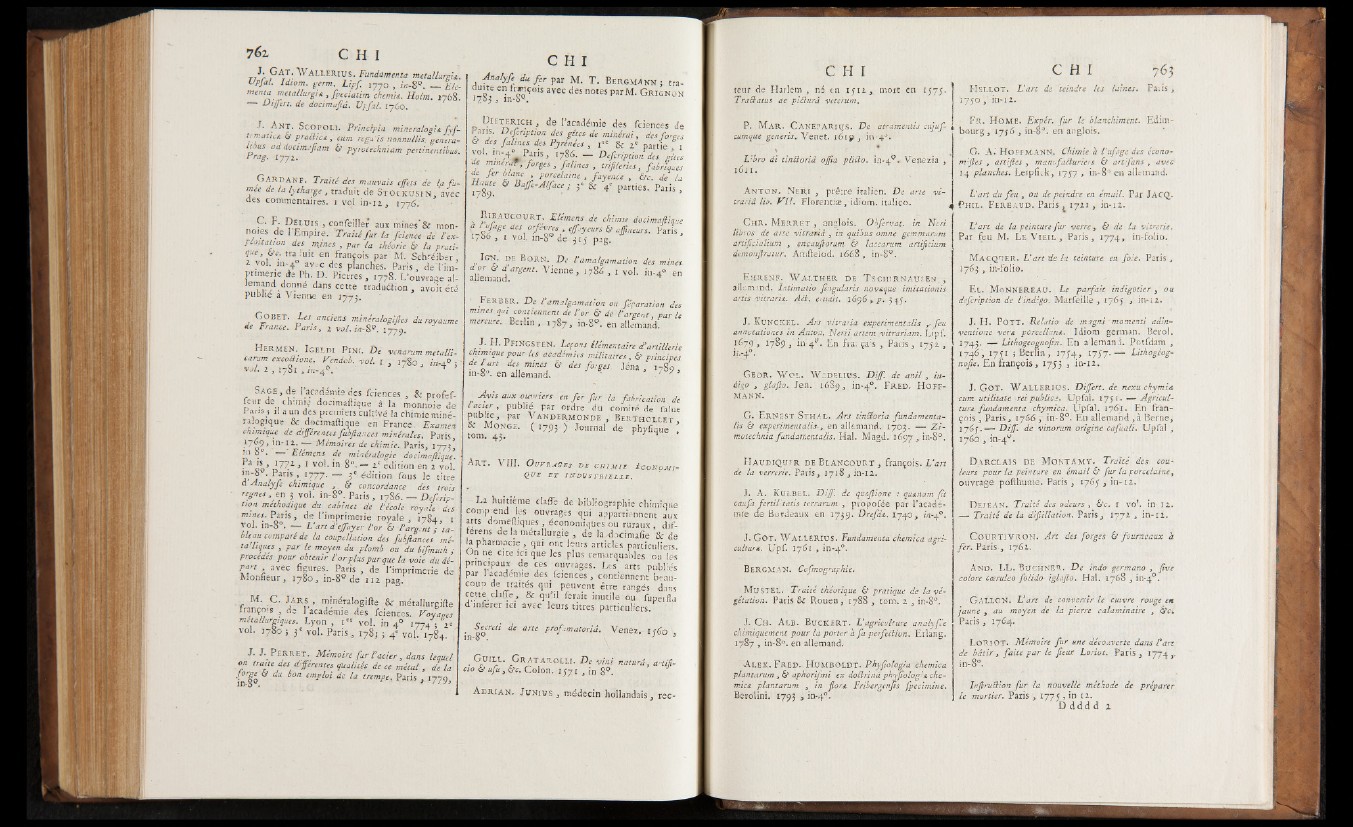 762 C H I
J. GAT. WALLERIUS. Fundamenta metallurgiæ.
Upsal. Idiom. germ. Lips. 1770, in-8°. — Ele-
menta metallurgiæ, speciatim chemiæ. Holm. 1768.
— Dissert. de docimasiâ. Upsal. 1760.
J. ANT. SCOPOLI. Principia mineralogiæ sys-
tematicæ & practicæ, cum regulis nonnullis, genera-
libus ad docimasiam & pyrotechniam pertinentibus.
Prag. 1772.
GARDANE. Traité des mauvais effets de la fu-
mée de la lytharge, traduit de STOCKUSEN, avec
des commentaires. 1 vol in-12, 1776.
C. F. DELUIS, conseiller aux mines & mon-
noies de l'Empire. Traité sur la science de l'ex-
ploitation des mines, par la théorie & la prati-
que, &c. traduit en françois par M. Schréiber,
2 vol. in-4° avec des planches. Paris, de l'im-
primerie de Ph. D. Pierres, 1778. L'ouvrage al-
lemand donné dans cette traduction, avoit été
publié à Vienne en 1773.
GOBET. Les anciens minéralogistes du royaume
de France. Paris, 2 vol. in-8°. 1779.
HERMEN. IGELDI FINI. De venarum metalli-
carum excoctione. Vendob. vol. 1, 1780, in-4°;
vol. 2, 1781, in-4°.
SAGE, de l'académie des sciences, & profes-
seur de chimie docimastique à la monnoie de
Paris, il a un des premiers cultivé la chimie miné-
ralogique & docimastique en France. Examen
chimique de différentes substances minérales. Paris,
1769, in-12. — Mémoires de chimie. Paris, 1773,
in 8°. — Elémens de minéralogie docimastique.
Paris, 1772, 1 vol. in 8°. — 2e édition en 2 vol.
in-8°. Paris, 1777. — 3e édition sous le titre
d'Analyse chimique, & concordance des trois
regnes, en 3 vol. in-8°. Paris, 1786. — Descrip-
tion méthodique du cabinet de l'école royale des
mines. Paris, de l'imprimerie royale, 1784, 1
vol. in-8°. — L'art d'essayer l'or & l'argent; ta-
bleau comparé de la coupellation des substances mé-
talliques, par le moyen du plomb ou du bismuth;
procédés pour obtenir l'or plus pur que la voie du dé-
part, avec figures. Paris, de l'imprimerie de
Monsieur, 1780, in-8° de 112 pag.
M. C. JARS, minéralogiste & métallurgiste
françois, de l'académie des sciences. Voyages
métallurgiques. Lyon, 1er vol. in 4° 1774; 2e
vol. 1780; 3e vol. Paris, 1783; 4e vol. 1784.
J. J. PERRET. Mémoire sur l'acier, dans lequel
on traite des différentes qualités de ce métal, de la
forge & du bon emploi de la trempe, Paris, 1779,
in-8°.
C H I
Analyse du fer par M. T. BERGMANN; tra-
duite en françois avec des notes par M. GRIGNON
1783, in-8°.
DIETERICH, de l'académie des sciences de
Paris. Description des gîtes de minérai, des forges
& des salines des Pyrénées, 1re & 2e partie, 1
vol. in-4° Paris, 1786. — Description des gîtes
de minérai, forges, salines, trifileries, fabriques
de fer blanc, porcelaine, fayence, &c. de la
Haute & Basse-Alsace; 3e & 4e parties. Paris,
1789.
RIBAUCOURT. Elémens de chimie docimastique
à l'usage des orfèvres, essayeurs & affineurs. Paris,
1786, 1 vol. in-8° de 315 pag.
IGN. DE BORN. De l'amalgamation des mines
d'or & d'argent. Vienne, 1786, 1 vol. in-4° en
allemand.
FERBER. De l'amalgamation ou séparation des
mines qui contiennent de l'or & de l'argent, par le
mercure. Berlin, 1787, in-8°. en allemand.
J. H. PFINGSTEN. Leçons élémentaire d'artillerie
chimique pour les académies militaires, & principes
de l'art des mines & des forges. Jéna, 1789,
in-8°. en allemand.
Avis aux ouvriers en fer sur la fabrication de
l'acier, publié par ordre du comité de salut
public, par VANDERMONDE, BERTHOLLET,
& MONGE. (1793) Journal de physique,
tom. 43.
ART. VIII. OUVRAGES DE CHIMIE ÉCONOMI-
QUE ET INDUSTRIELLE.
La huitième classe de bibliographie chimique
comprend les ouvrages qui appartiennent aux
arts domestiques, économiques ou ruraux, dif-
férens de la métallurgie, de la docimasie & de
la pharmacie, qui ont leurs articles particuliers.
On ne cite ici que les plus remarquables ou les
principaux de ces ouvrages. Les arts publiés
par l'académie des sciences, contiennent beau-
coup de traités qui peuvent être rangés dans
cette classe, & qu'il seroit inutile ou superflu
d'insérer ici avec leurs titres particuliers.
Secreti de arte profumatoriâ. Venez. 1560,
in-8°.
GUILL. GRATAROLLI. De vini naturâ, artifi-
cio & usu, &c. Colon. 1571, in 8°.
ADRIAN. JUNIUS, médecin hollandais, rec-
C H I
teur de Harlem, né en 1512, mort en 1575.
Tractatus ac picturâ veterum.
P. MAR. CANEPARIUS. De atramentis cujus-
cumque generis. Venet. 1619, in-4°.
L'bro di tinctoriâ ossia plido. in-4°. Venezia,
1611.
ANTON. NERI, prêtre italien. De arte vi-
trariâ lib. VII. Florentiæ, idiom. italico.
CHR. MERRET, anglois. Observat. in Neri
libros de arte vitrariâ, in quibus omne gemmarum
artificialium, encaustorum & laccarum artificium
demonstratur. Amstelod. 1668, in-8°.
EHRENF. WALTHER DE TSCHIRNAUSEN,
allemand. Intimatio singularis novæque imitationis
artis vitrariæ. Act. erudit. 1696, p. 345.
J. KUNCKEL. Ars vitraria experimentalis, seu
annotationes in Anton. Nerii artem vitrariam. Lipf.
1679, 1789, in 4°. En français, Paris, 1752,
in-4°.
GEOR. WOL. WEDELIUS. Diss. de anil, in-
digo, glasto. Jen. 1689, in-4°. FRED. HOFF-
MANN.
G. ERNEST STHAL. Ars tinctoria fundamenta-
lis & experimentalis, en allemand. 1703. — Zi-
motechnia fundamentalis. Hal. Magd. 1697, in-8°.
HAUDIQUER DE BLANCOURT, françois. L'art
de la verrerie. Paris, 1718, in-12.
J. A. KULBEL. Diss. de quæstione : quænam sit
causa fertilitatis terrarum, proposée par l'acadé-
mie de Bordeaux en 1739. Dresdæ. 1740, in-4°.
J. GOT. WALLERIUS. Fundamenta chemica agri-
culturæ. Upf. 1761, in-4°.
BERGMAN. Cosmographie.
MUSTEL. Traité théorique & pratique de la vé-
gétation. Paris & Rouen, 1788, tom. 2, in-8°.
J. CH. ALB. BUCKERT. L'agriculture analysée
chimiquement pour la porter à sa perfection. Erlang.
1787, in-8°. en allemand.
ALEX. FRED. HUMBOLDT. Physiologia chemica
plantarum, & aphorismi ex doctrinâ physiologiæ che-
micæ plantarum, in floræ Fribergensis specimine.
Berolini. 1793, in-4°.
C H I 763
HELLOT. L'art de teindre les laines. Paris,
1750, in-12.
FR. HOME. Expér. sur le blanchiment. Edim-
bourg, 1756, in-8°. en anglois.
G. A. HOFFMANN. Chimie à l'usage des écono-
mistes, artistes, manufacturiers & artisans, avec
14 planches. Leipsick, 1757, in-8° en allemand.
L'art du feu, ou de peindre en émail. Par JACQ.
PHIL. FEREAUD. Paris, 1721, in-12.
L'art de la peinture sur verre, & de la vitrerie.
Par feu M. LE VIEIL, Paris, 1774, in-folio.
MACQUER. L'art de la teinture en soie. Paris,
1763, in-folio.
EL. MONNEREAU. Le parfait indigotier, ou
description de l'indigo. Marseille, 1765, in-12.
J. H. POTT. Relatio de magni momenti adin-
ventione veræ porcellanæ. Idiom german. Berol.
1743. — Lithogeognosin. En allemand. Potsdam,
1746, 1751; Berlin, 1754, 1757. — Lithogéog-
nosie. En françois, 1753, in-12.
J. GOT. WALLERIUS. Dissert. de nexu chymiæ
cum utilitate rei publicæ. Upsal. 1751. — Agricul-
turæ fundamenta chymica. Upsal. 1761. En fran-
çois, Paris, 1766, in-8°. En allemand, à Berne,
1765. — Diss. de vinorum origine casuali. Upsal,
1760, in-4°.
DARCLAIS DE MONTAMY. Traité des cou-
leurs pour la peinture en émail & sur la porcelaine,
ouvrage posthume. Paris, 1765, in-12.
DEJEAN. Traité des odeurs, &c. 1 vol. in 12.
— Traité de la distillation. Paris, 1772, in-12.
COURTIVRON. Art des forges & fourneaux à
fer. Paris, 1762.
AND. LL. BUCHNER. De indo germano, sive
colore cæruleo solido iglasto. Hal. 1768, in-4°.
GALLON. L'art de convertir le cuivre rouge en
jaune, au moyen de la pierre calaminaire, &c.
Paris, 1764.
LORIOT. Mémoire sur une découverte dans l'art
de bâtir, faite par le sieur Loriot. Paris, 1774,
in-8°.
Instruction sur la nouvelle méthode de préparer
le mortier. Paris, 1775, in 12.
D d d d d 2